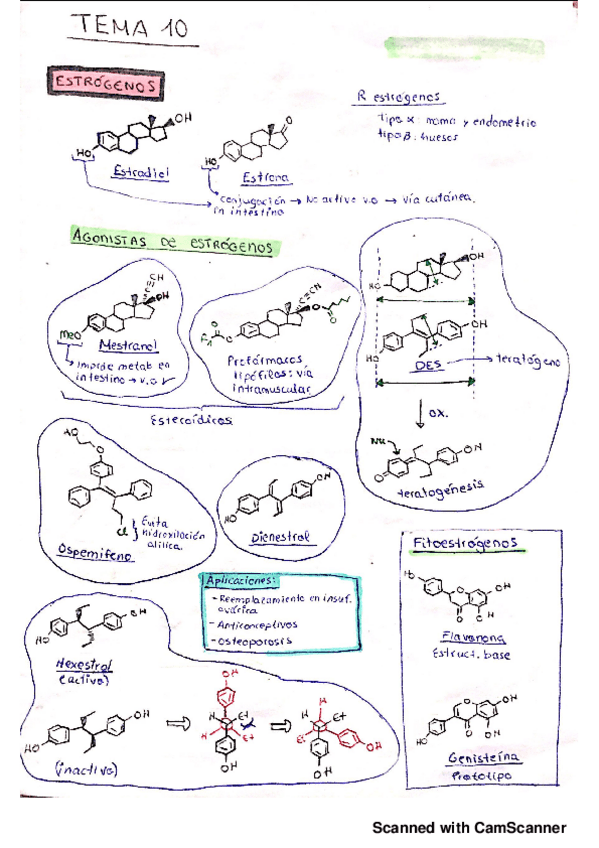 TEMA 10
ESTRÓGENOS
R estrógenos
Tipo α: mama y endometrio
tipo β: huesos
OH
HO
Estradiol
O
HO
Estrona
conjugación → No activo v.o → vía cutánea.
en intestino
AGONISTAS DE ESTRÓGENOS
CH
OH
MeO
Mestranol
Impide metab en
intestino → v.o ✓
Profármacos
lipófilos: vía
intramuscular
Esteroídicos
OH
HO
OH
HO
DES → teratógeno
OX.
Nu
OH
O
teratogénesis
HO
O
Cl
Evita
hidroxilación
alílica.
Ospemifeno
OH
HO
Dienestrol
Aplicaciones:
- Reemplazamiento en insuf.
ovárica
- Anticonceptivos
- Osteoporosis
Fitoestrógenos
HO
O
OH
O
OH
Flavanona
Estruct. base
O
OH
HO
O
OH
Genisteína
Prototipo
OH
HO
Hexestrol
(activo)
OH
HO
(inactivo)
HO
H
Et
H
Et
OH
H
H
Et
Et
OH
OH
Scanned with CamScanner